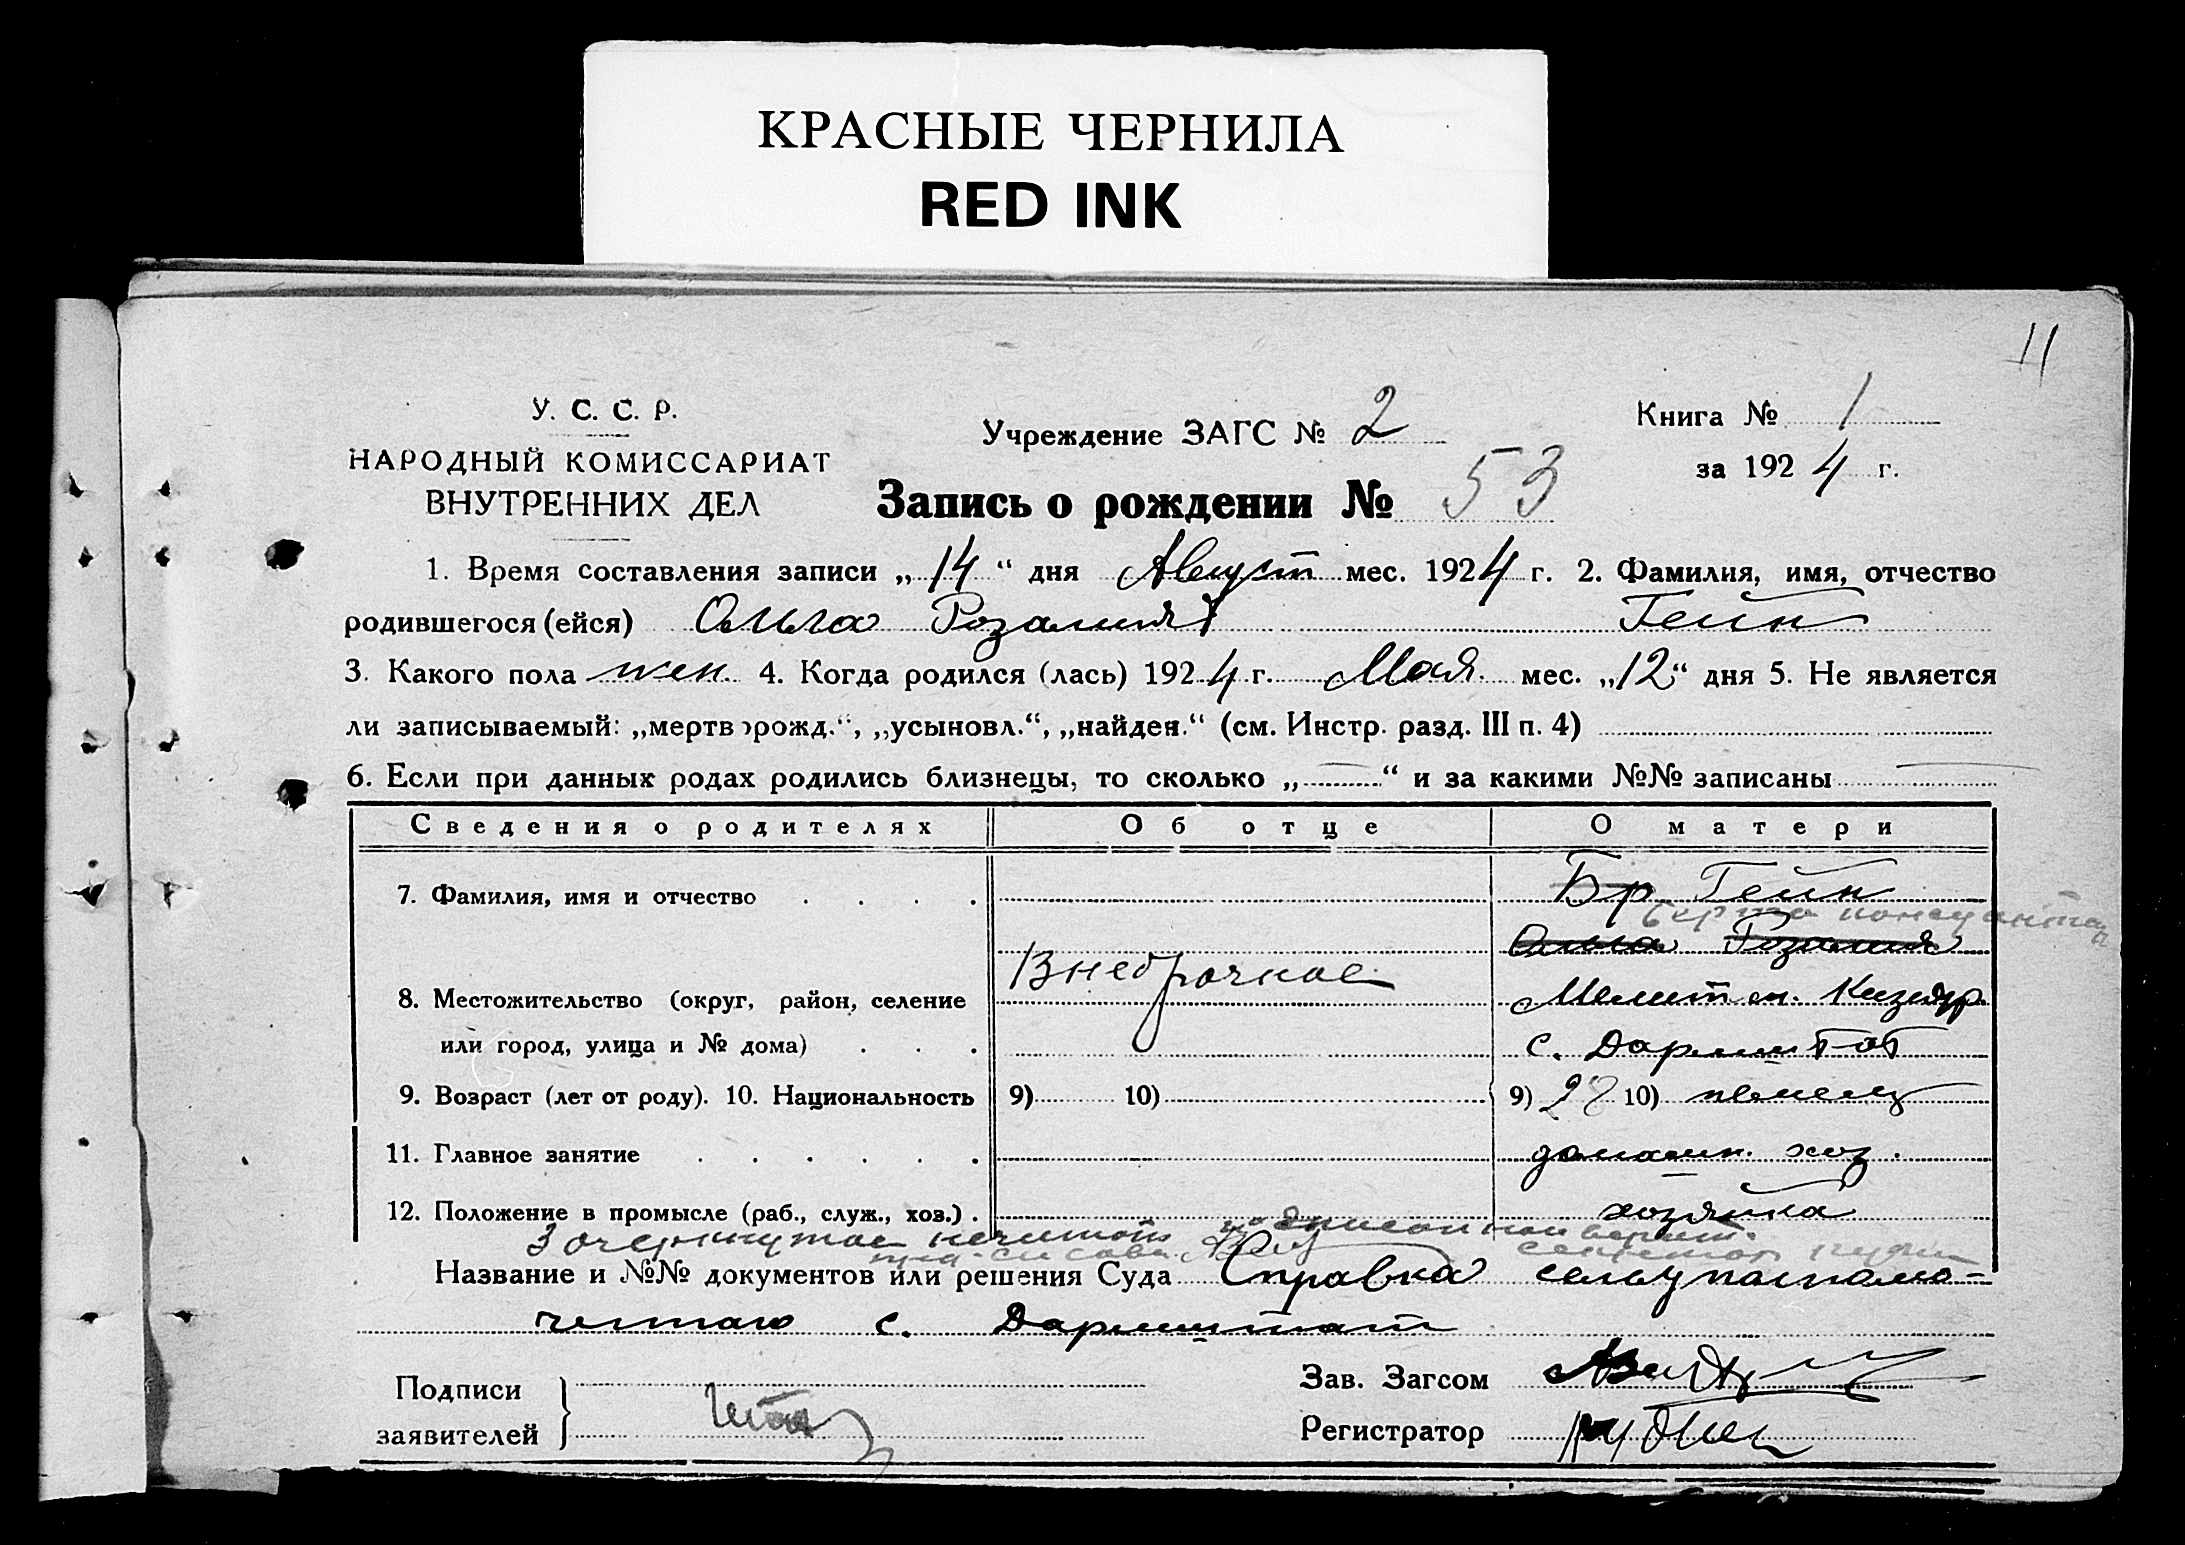 КРАСНЫЕ ЧЕРНИЛА
RED INK
11
У. С. С. Р.
НАРОДНЫЙ КОМИССАРИАТ
ВНУТРЕННИХ ДЕЛ
Учреждение ЗАГС № 2
Книга № 1
за 1924 г.
Запись о рождении № 53
1. Время составления записи „14“ дня Август мес. 1924 г. 2. Фамилия, имя, отчество
родившегося (ейся) Ольга Розалия Гейн
3. Какого пола жен. 4. Когда родился (лась) 1924 г. Мая мес. „12“ дня 5. Не является
ли записываемый: „мертворожд.“, „усыновл.“, „найден.“ (см. Инстр. разд. III п. 4)
6. Если при данных родах родились близнецы, то сколько „—“ и за какими №№ записаны —
Сведения о родителях Об отце О матери
7. Фамилия, имя и отчество Бр Гейн
Берта
Ольга Розалия
Внебрачное
8. Местожительство (округ, район, селение Мелитоп. Кизияр.
или город, улица и № дома) с. Дармштат
9. Возраст (лет от роду). 10. Национальность 9) 10) 9) 28 10) немец
11. Главное занятие домашн. хоз.
12. Положение в промысле (раб., служ., хоз.) хозяйка
Зачеркнутое не читать
Название и №№ документов или решения Суда Справка сельуполномо-
ченаго с. Дармштат
Подписи
заявителей
Зав. Загсом
Регистратор